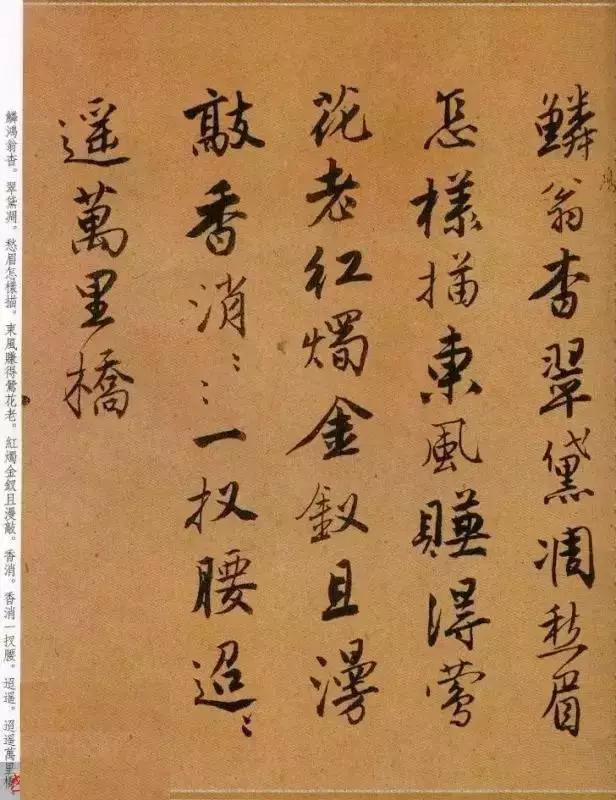 鱗翁杳翠黛凋愁眉
鴻
怎樣描東風賺得鶯
花老紅燭金釵且漫
敲香消〻〻一扠腰迢〻
遥萬里橋
鱗鴻翁杳。翠黛凋。愁眉怎樣描。東風賺得鶯花老。紅燭金釵且漫敲。香消。香消一扠腰。迢遥。迢遥萬里橋